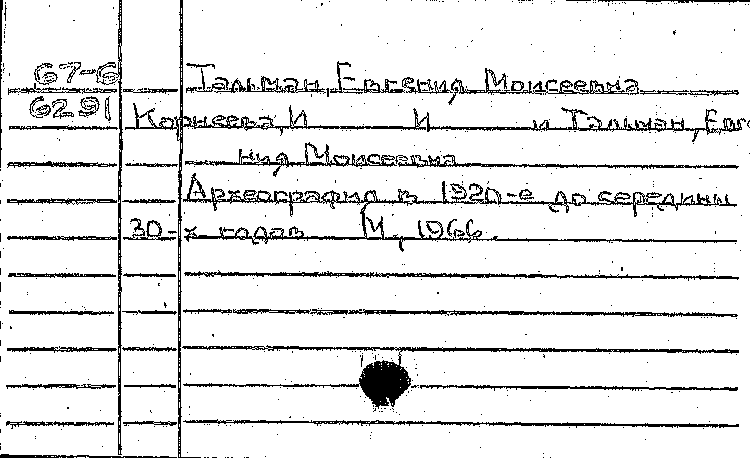 67-6 Тальман, Евгения Моисеевна
6291 Корнеева, И И и Тальман, Евге
ния Моисеевна
Археография в 1920-е до середины
30-х годов М., 1966.